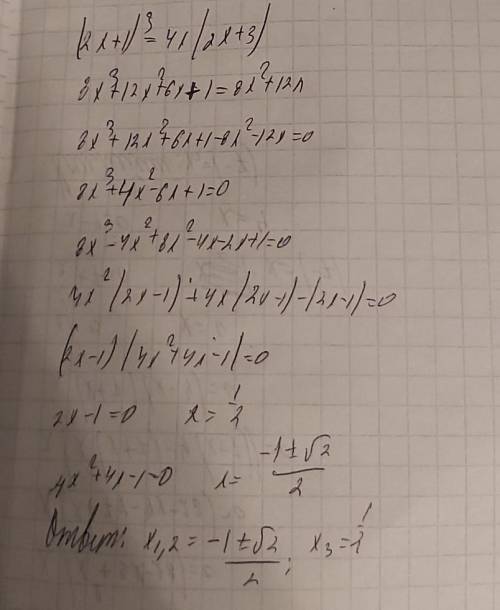 (2x+1)³=4x(2x+3)
8x³+12x²+6x+1=8x²+12x
8x³+12x²+6x+1-8x²-12x=0
8x³+4x²-6x+1=0
8x³-4x²+8x²-4x-2x+1=0
4x²(2x-1)+4x(2x-1)-(2x-1)=0
(2x-1)(4x²+4x-1)=0
2x-1=0 x=1/2
4x²+4x-1=0 x=(-1±√2)/2
Ответ: x₁,₂=(-1±√2)/2; x₃=1/2